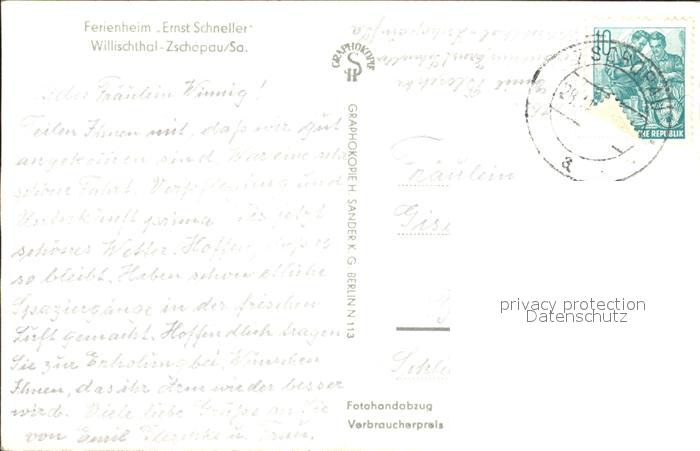 Ferienheim „Ernst Schneller"
Willischthal-Zschopau/Sa.
Liebe Fräulein Winnig!
Teilen Ihnen mit, daß wir gut
angekommen sind. War eine sehr
schöne Fahrt. Verpflegung und
Unterkunft prima. Bis jetzt
schönes Wetter. Hoffen, daß es
so bleibt. Haben schon etliche
Spaziergänge in der frischen
Luft gemacht. Hoffendlich tragen
Sie zur Erholung bei. Wünschen
Ihnen, das ihr Arm wieder besser
wird. Viele liebe Grüße an Sie
von Emil u. Frau.
GRAPHOKOPIE
GRAPHOKOPIE H. SANDER K. G. BERLIN N 113
Fräulein
10
HE REPUBLIK
a
privacy protection
Datenschutz
Fotohandabzug
Verbraucherpreis